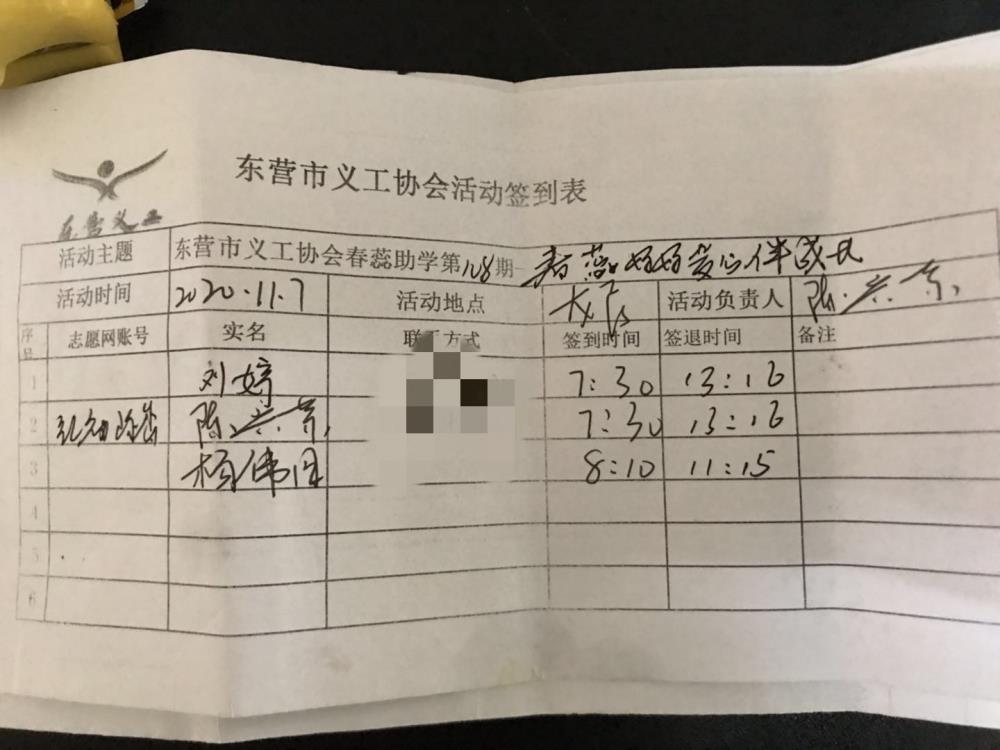 东营市义工协会活动签到表
东营义工
活动主题 东营市义工协会春蕊助学第108期-春蕊
活动时间 2020.11.7 活动地点 活动负责人 陈兴京
序号 志愿网账号 实名 联系方式 签到时间 签退时间 备注
1 刘婷 7:30 13:16
2 陈兴京 7:30 13:16
3 杨伟 8:10 11:15
4
5
6